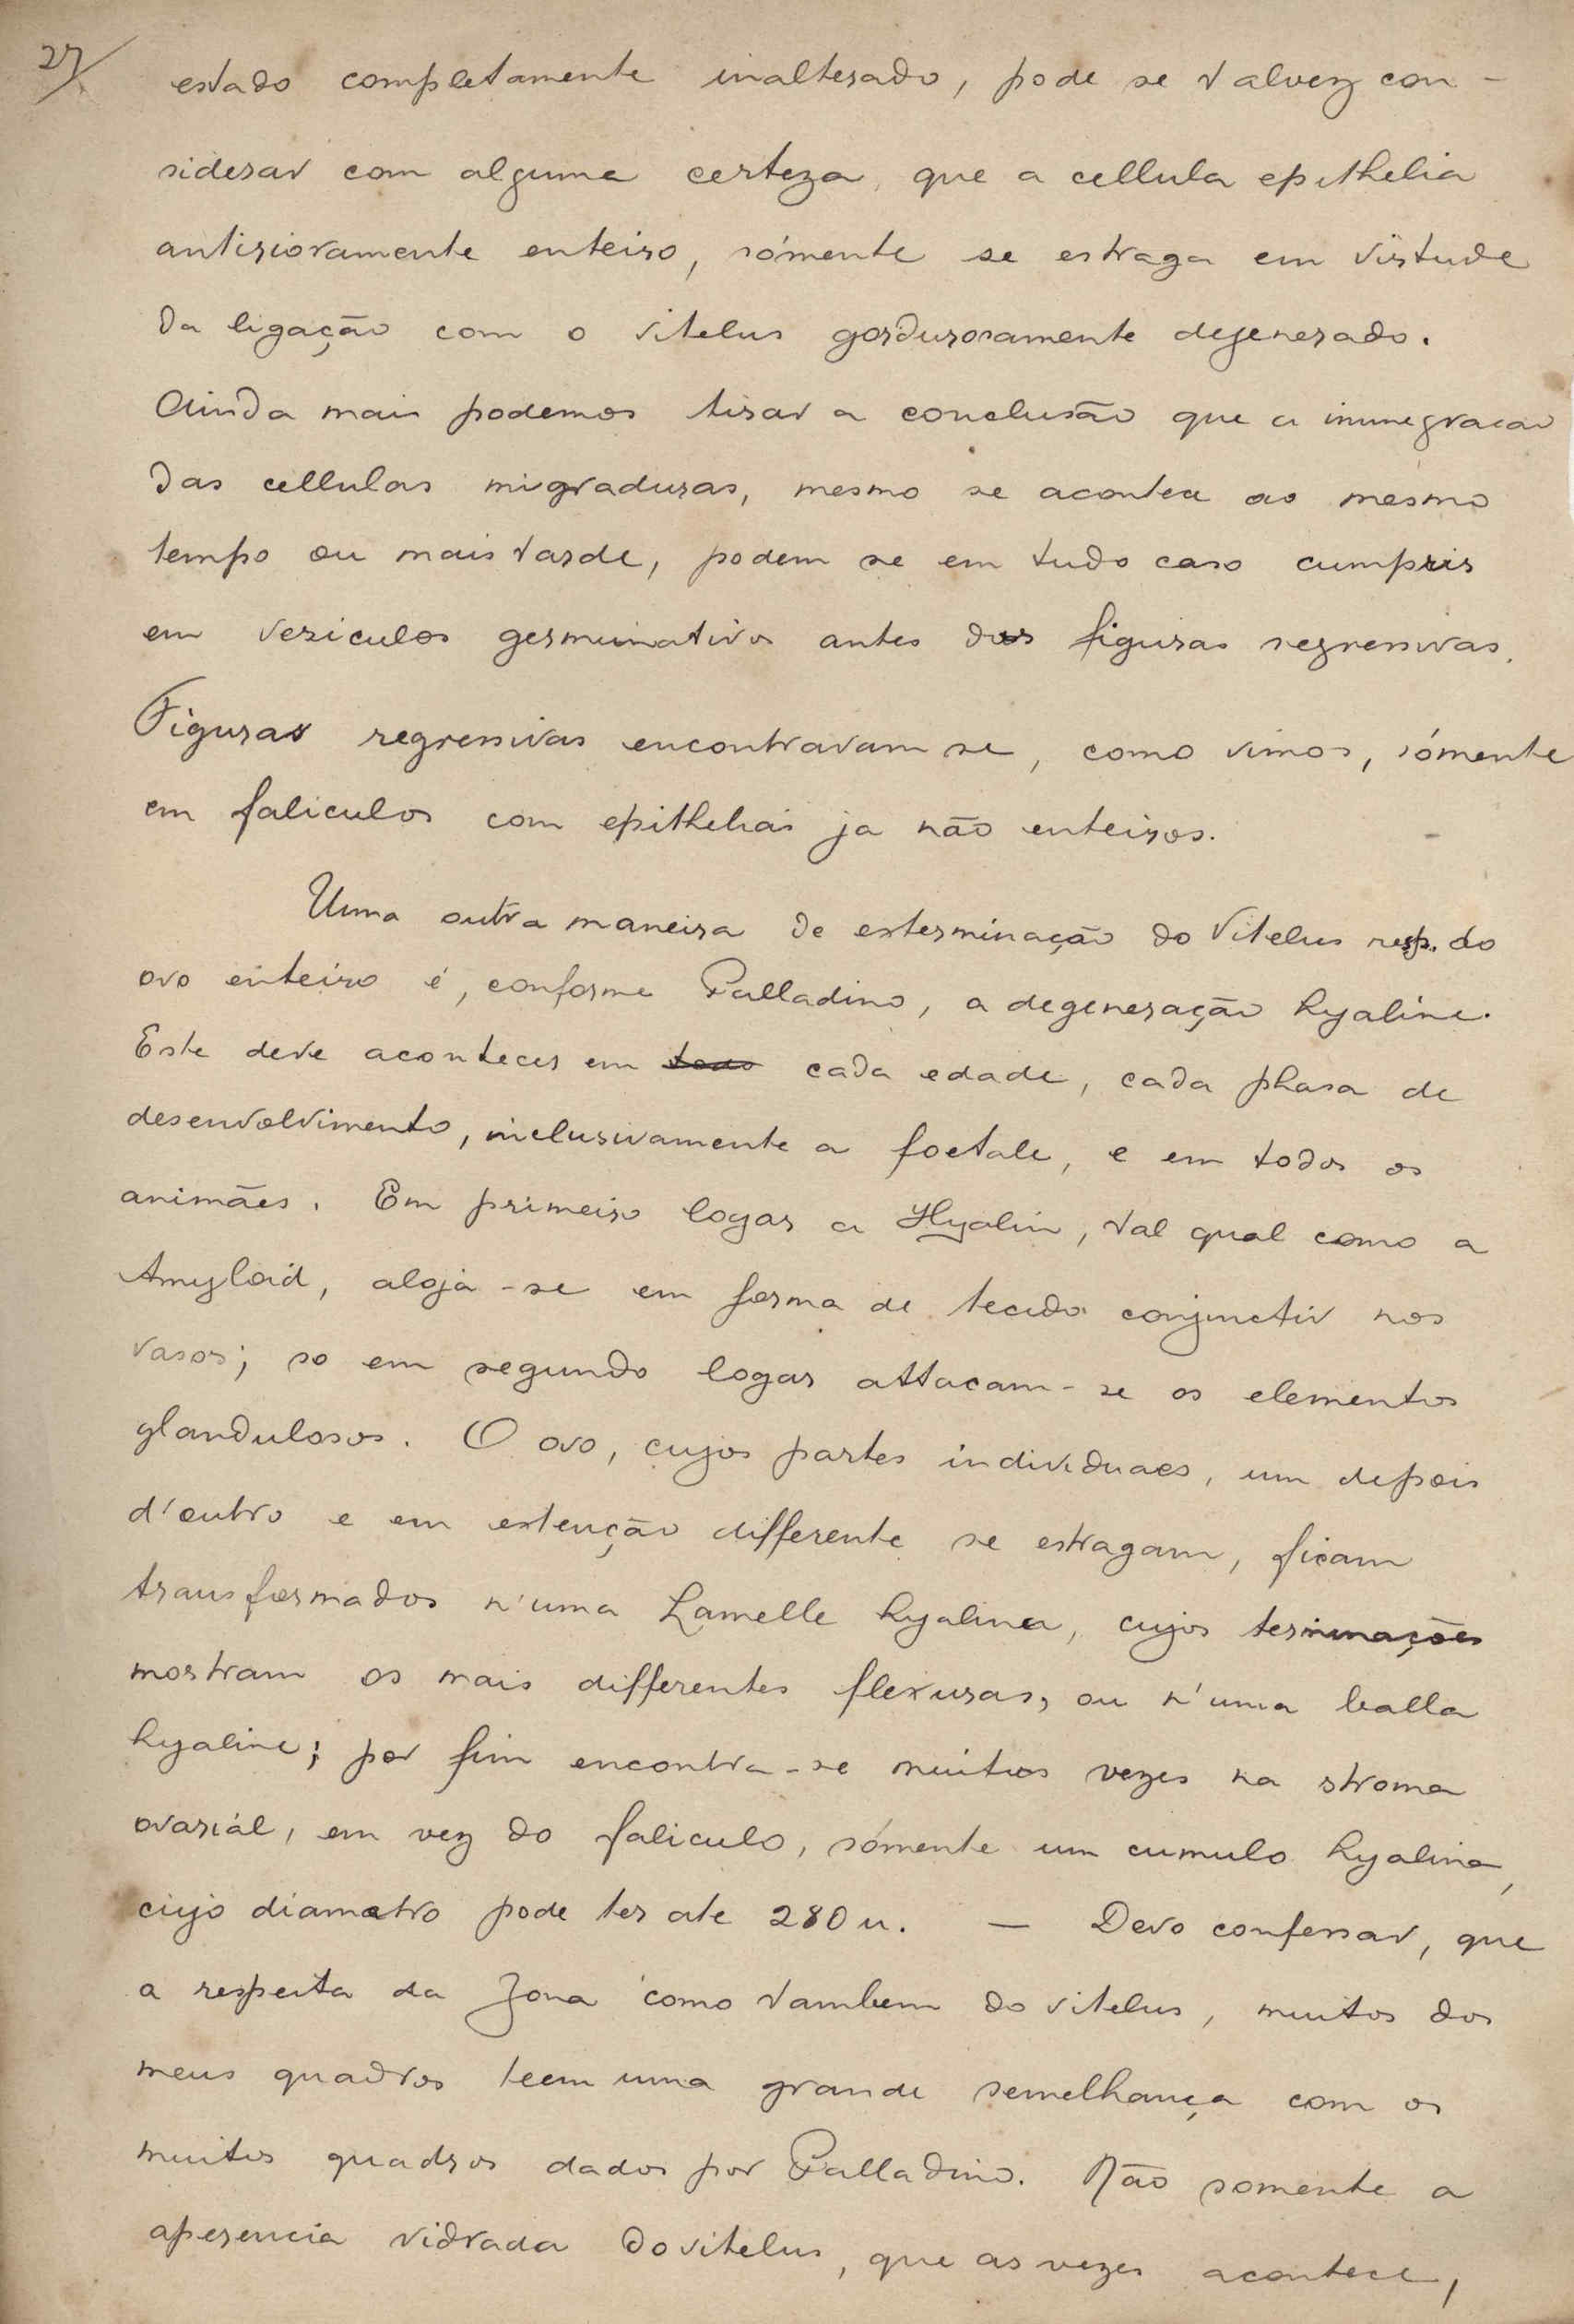 27/
estado completamente inalterado, pode se talvez con-
siderar com alguma certeza, que a cellula epithelia
antirioramente enteiro, sómente se estraga em virtude
da ligação com o vitelus gordurosamente degenerado.
Ainda mais podemos tirar a conclusão que a immegracao
das cellulas migraduras, mesmo se acontece ao mesmo
tempo ou mais tarde, podem se em tudo caso cumprir
em vesiculos germinativos antes das figuras regressivas.
Figuras regressivas encontravam se, como vimos, sómente
em faliculos com epithelias ja não enteiros.
Uma outra maneira de exterminação do Vitelus resp. do
ovo enteiro é, conforme Palladino, a degeneração hyaline.
Este deve acontecer em todo cada edade, cada phasa de
desenvolvimento, inclusivamente a foetale, e em todos os
animães. Em primeiro logar a Hyalin, tal qual como a
Amyloid, aloja-se em forma de tecido conjunctiv nos
vasos; so em segundo logar attacam-se os elementos
glandulosos. O ovo, cujos partes individuaes, um depois
d'outro e em extenção differente se estragam, ficam
transformados n'uma Lamelle hyalinea, cujos terminações
mostram os mais differentes flexuras, ou n'uma balla
hyaline; por fim encontra-se muitos vezes na stroma
ovariál, em vez do faliculo, sómente um cumulo hyalino,
cujo diametro pode ter ate 280 u. — Devo confessar, que
a respeita da Zona como tambem do vitelus, muitos dos
meus quadros teem uma grande semelhança com os
muitos quadros dados por Palladino. Não somente a
aperencia vidrada do vitelus, que as vezes acontece,